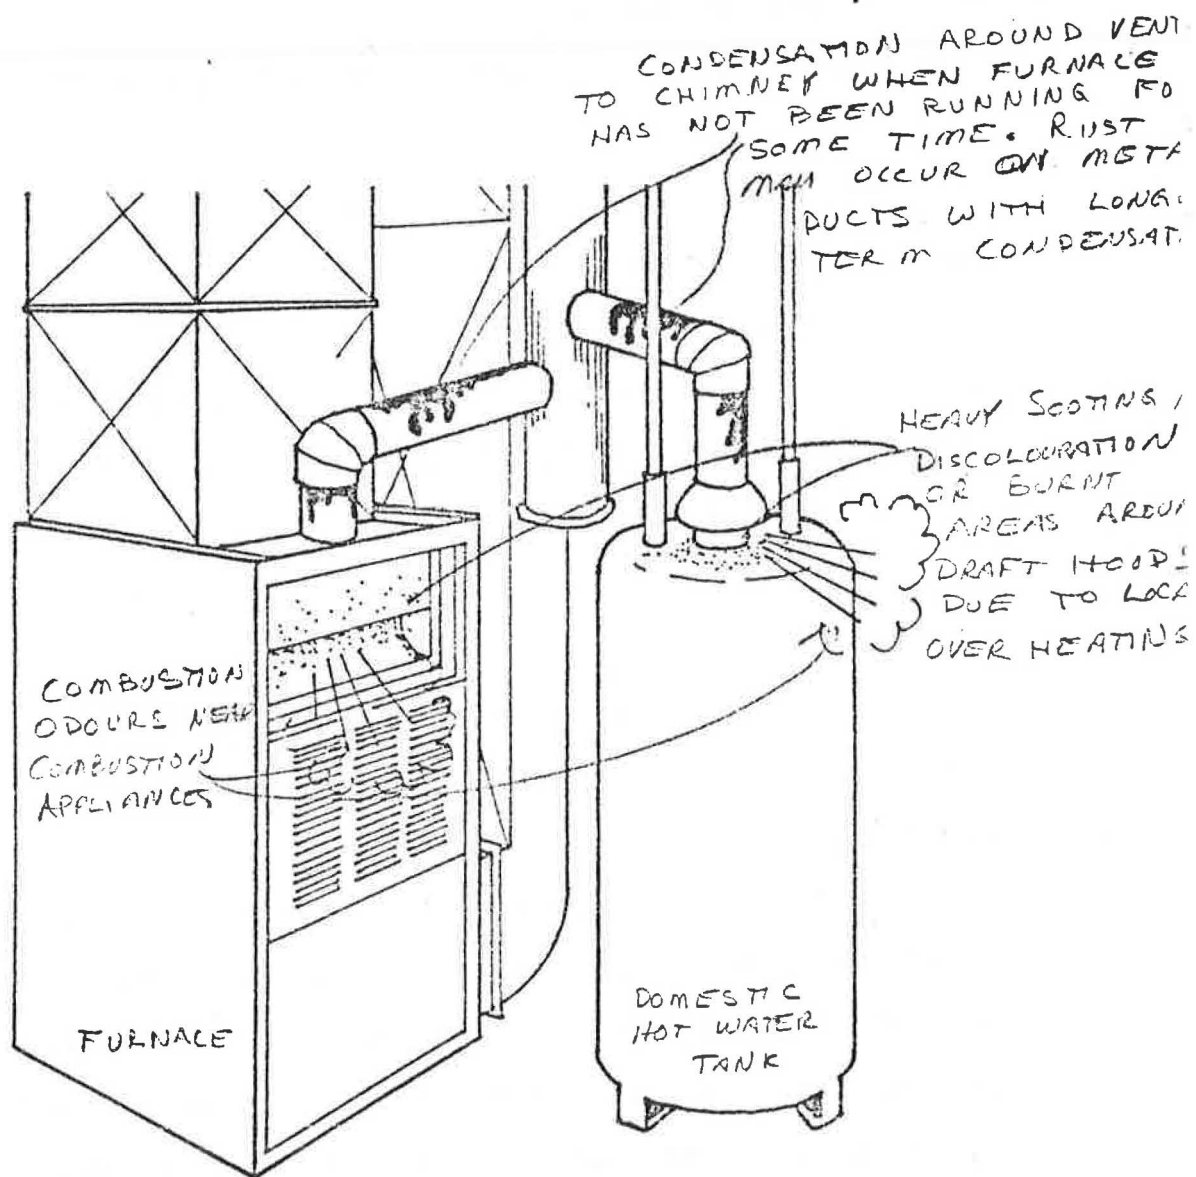 CONDENSATION AROUND VENT
TO CHIMNEY WHEN FURNACE
HAS NOT BEEN RUNNING FO
SOME TIME. RUST
MAY OCCUR ON META
DUCTS WITH LONG.
TERM CONDENSAT.
HEAVY SOOTING,
DISCOLOURATION
OR BURNT
AREAS AROUN
DRAFT HOODS
DUE TO LOCA
OVER HEATING
COMBUSTION
ODOURS NEAR
COMBUSTION
APPLIANCES
FURNACE
DOMESTIC
HOT WATER
TANK